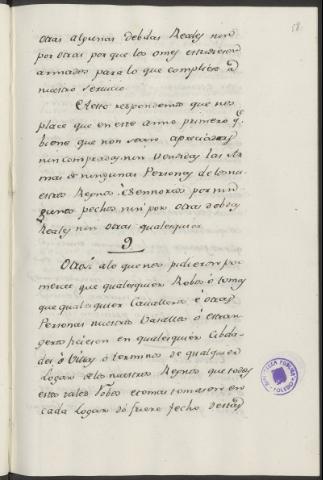 58.
otras algunas debdas Reales nin
por otras por que los omes estudiesen
armados para lo que compliese a
nuestro servicio
A esto respondemos que nos
place que en este anno primero q.
biene que non sean apreciadas
nin compradas nin vendidas las Ar
mas de ningunas Personas de los nu
estros Reynos é Sennorios por nin
gunos pechos nin por otras debdas
Reales nin otras qualesquier
9
Otrosi a lo que nos pidieron por
merced que qualesquier Robos ó tomas
que qualesquier Cavalleros é otras
Personas nuestros Vasallos ó estran
geros ficieron en qualesquier Cibda
des ó Villas ó terminos de qualquier
Logar de los nuestros Reynos que todos
estos tales Robos é tomas tomasen en
cada Logar do fuere fecho